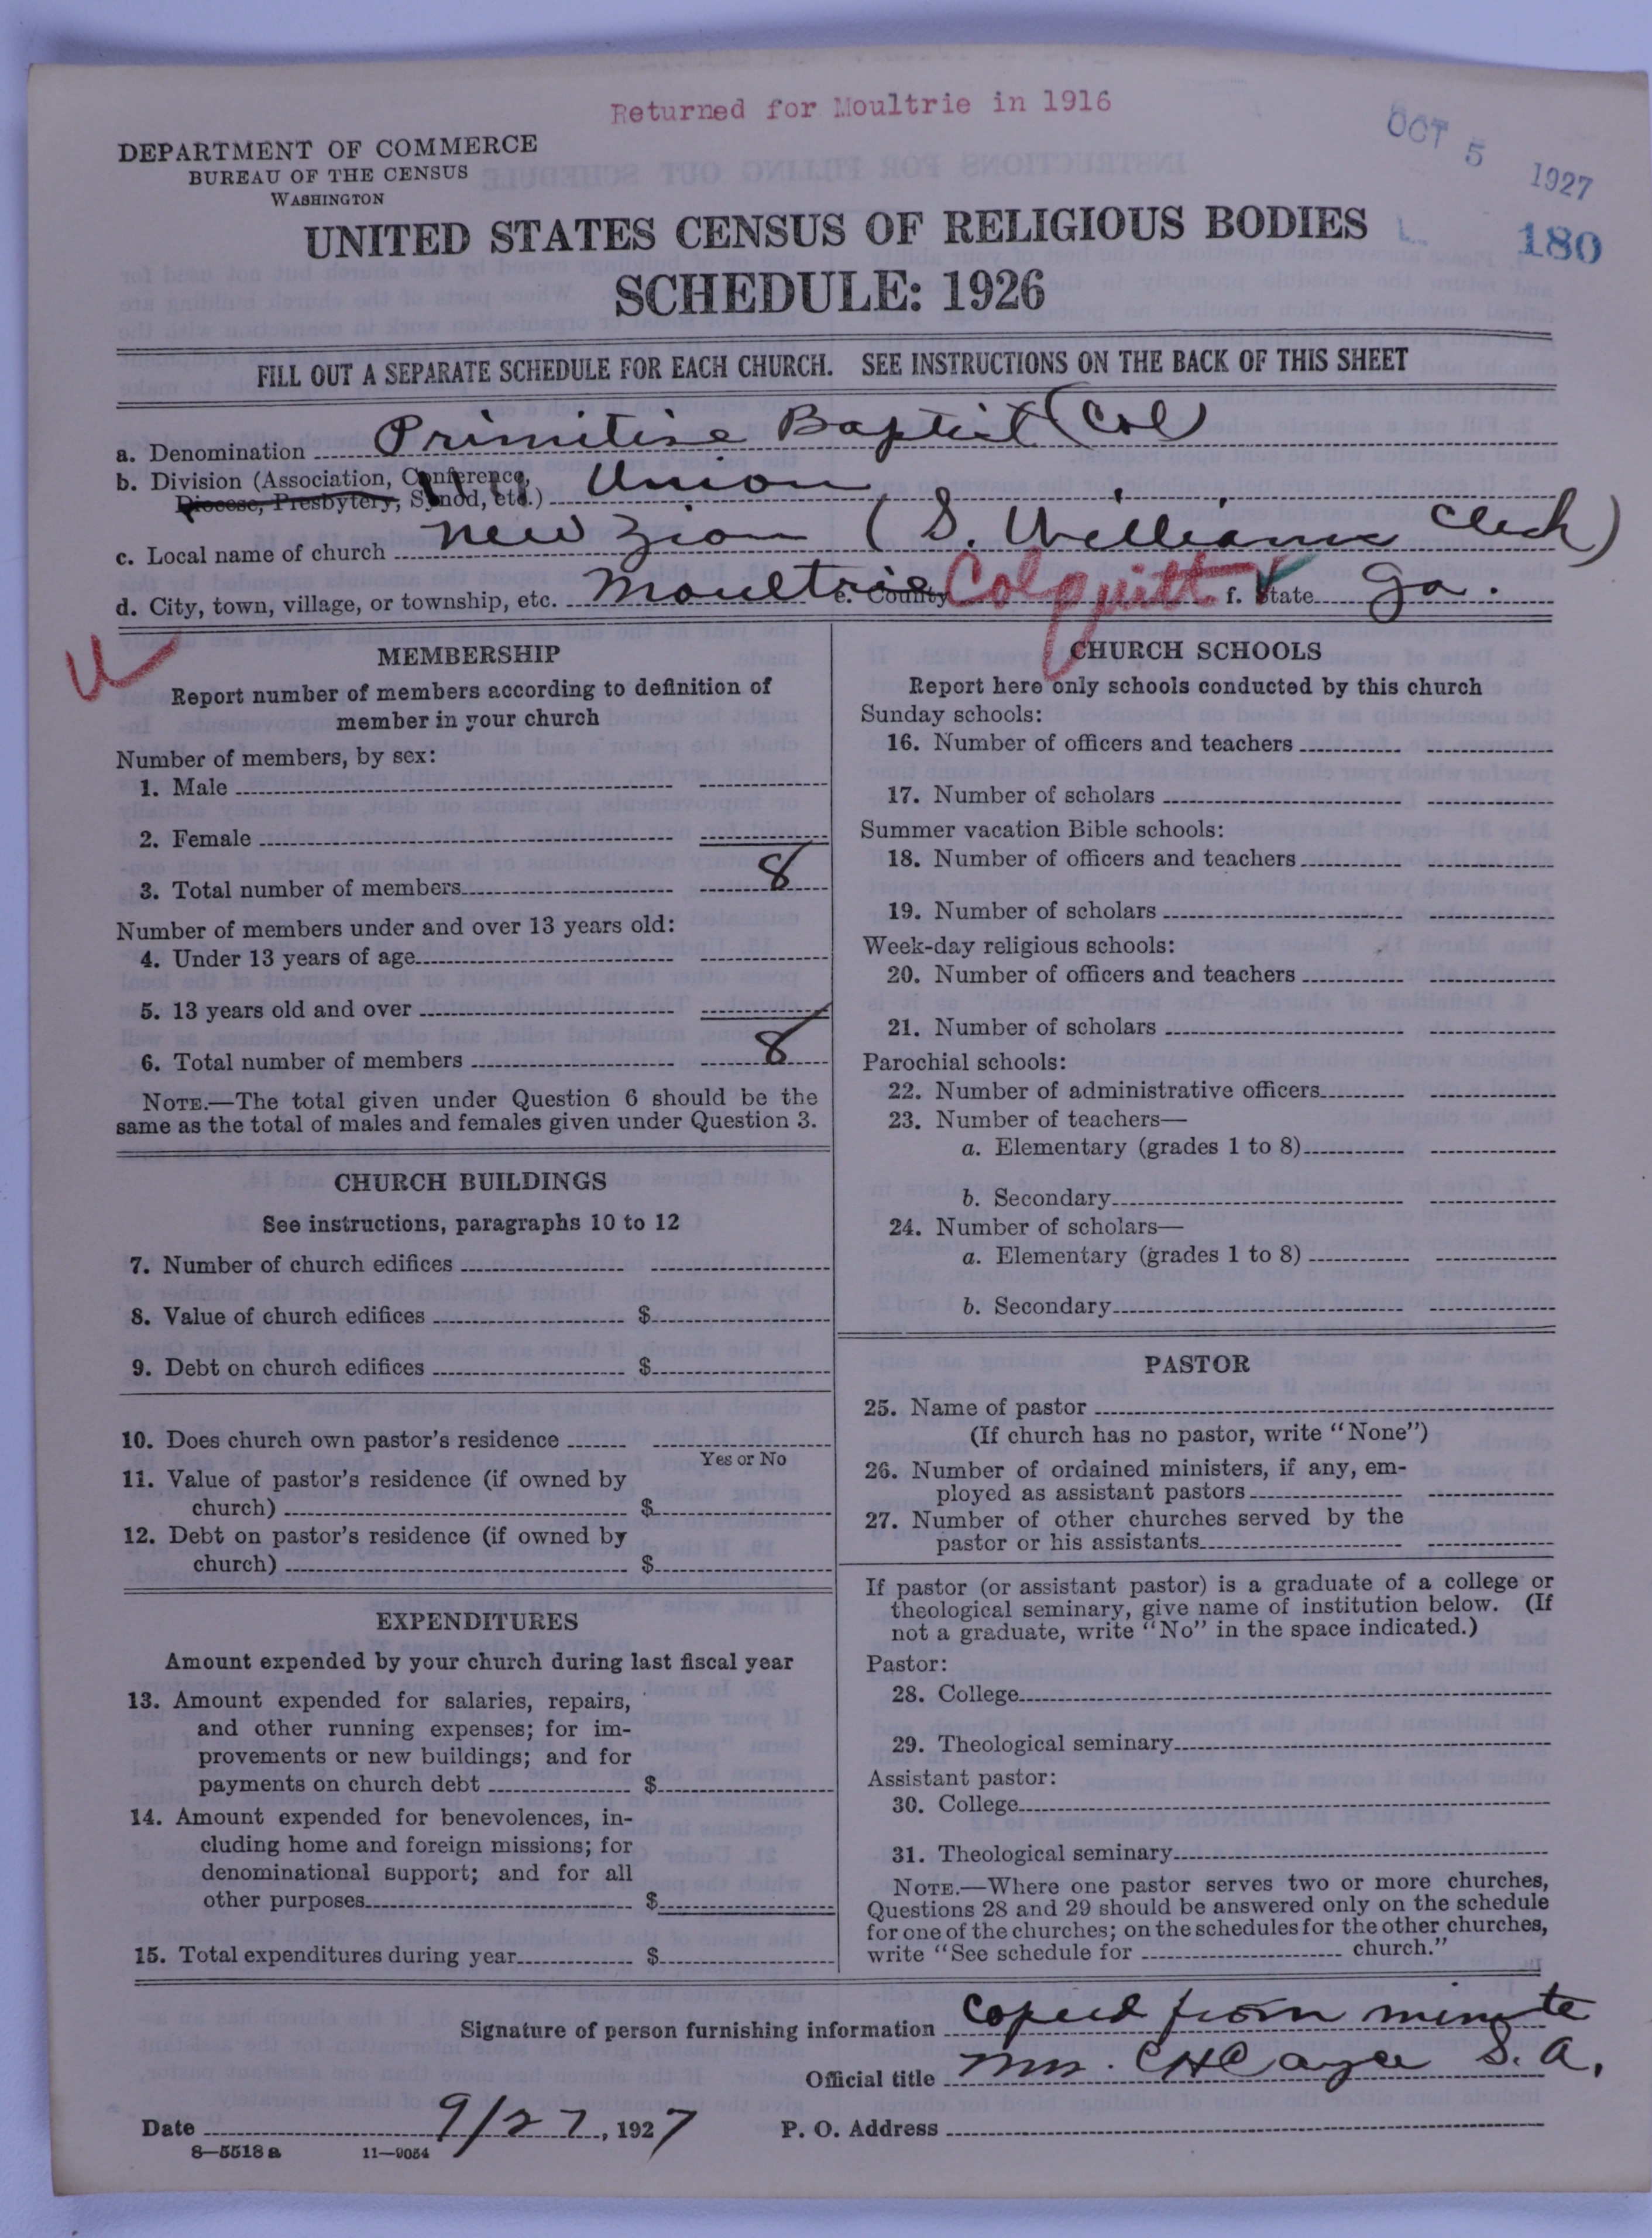 Returned for Moultrie in 1916
OCT 5 1927
180
DEPARTMENT OF COMMERCE
BUREAU OF THE CENSUS
WASHINGTON
UNITED STATES CENSUS OF RELIGIOUS BODIES
SCHEDULE: 1926
FILL OUT A SEPARATE SCHEDULE FOR EACH CHURCH. SEE INSTRUCTIONS ON THE BACK OF THIS SHEET
a. Denomination Primitive Baptist (Col)
b. Division (Association, Conference, Union
Diocese, Presbytery, Synod, etc.)
c. Local name of church New Zion (S. Williams Clerk)
d. City, town, village, or township, etc. Moultrie e. County Colquitt f. State Ga.
MEMBERSHIP
Report number of members according to definition of
member in your church
Number of members, by sex:
1. Male
2. Female
3. Total number of members 8
Number of members under and over 13 years old:
4. Under 13 years of age
5. 13 years old and over
6. Total number of members 8
NOTE.—The total given under Question 6 should be the
same as the total of males and females given under Question 3.
CHURCH BUILDINGS
See instructions, paragraphs 10 to 12
7. Number of church edifices
8. Value of church edifices $
9. Debt on church edifices $
10. Does church own pastor's residence
Yes or No
11. Value of pastor's residence (if owned by
church) $
12. Debt on pastor's residence (if owned by
church) $
EXPENDITURES
Amount expended by your church during last fiscal year
13. Amount expended for salaries, repairs,
and other running expenses; for im-
provements or new buildings; and for
payments on church debt $
14. Amount expended for benevolences, in-
cluding home and foreign missions; for
denominational support; and for all
other purposes $
15. Total expenditures during year $
CHURCH SCHOOLS
Report here only schools conducted by this church
Sunday schools:
16. Number of officers and teachers
17. Number of scholars
Summer vacation Bible schools:
18. Number of officers and teachers
19. Number of scholars
Week-day religious schools:
20. Number of officers and teachers
21. Number of scholars
Parochial schools:
22. Number of administrative officers
23. Number of teachers—
a. Elementary (grades 1 to 8)
b. Secondary
24. Number of scholars—
a. Elementary (grades 1 to 8)
b. Secondary
PASTOR
25. Name of pastor
(If church has no pastor, write "None")
26. Number of ordained ministers, if any, em-
ployed as assistant pastors
27. Number of other churches served by the
pastor or his assistants
If pastor (or assistant pastor) is a graduate of a college or
theological seminary, give name of institution below. (If
not a graduate, write "No" in the space indicated.)
Pastor:
28. College
29. Theological seminary
Assistant pastor:
30. College
31. Theological seminary
NOTE.—Where one pastor serves two or more churches,
Questions 28 and 29 should be answered only on the schedule
for one of the churches; on the schedules for the other churches,
write "See schedule for church."
Signature of person furnishing information Copied from minute
Official title Mrs. C H Cayce S. A.
Date 9/27, 1927 P. O. Address
8—5518 a 11—9054